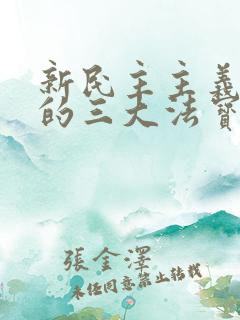 新民主主義
的三大法寶
張金澤
未經同意禁止轉載